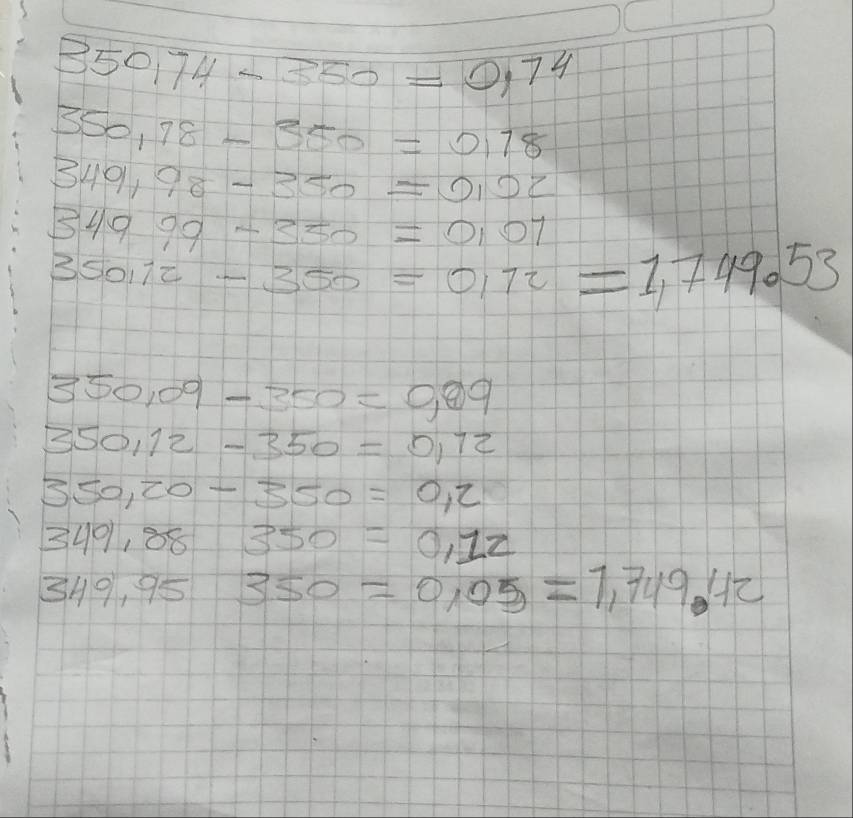 350,14 - 350 = 0,14
350,18 - 350 = 0,18
349,98 - 350 = 0,02
349 99 - 350 = 0,01
350,12 - 350 = 0,12 = 1,749.53
350,09 - 350 = 0,09
350,12 - 350 = 0,12
350,20 - 350 = 0,2
349,88 350 = 0,12
349,95 350 = 0,05 = 1,749.42